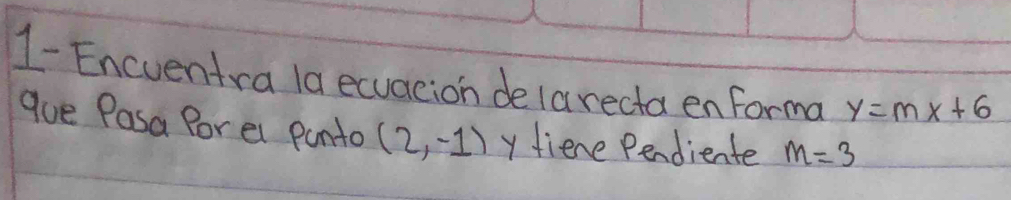 1- Encuentra la ecuación de la recta en forma y=mx+6
que Pasa Por el punto (2,-1) y tiene Pendiente m=3